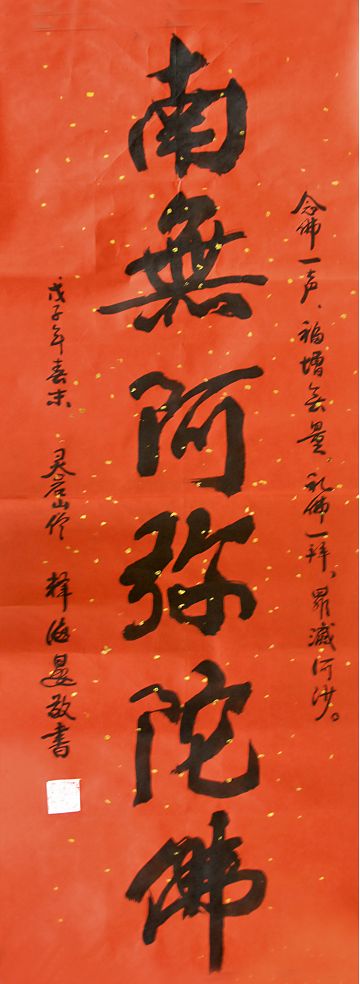 念佛一声、福增无量、礼佛一拜、罪灭河沙。
南無阿弥陀佛
戊子年春末 灵岩山僧 释海曼敬书